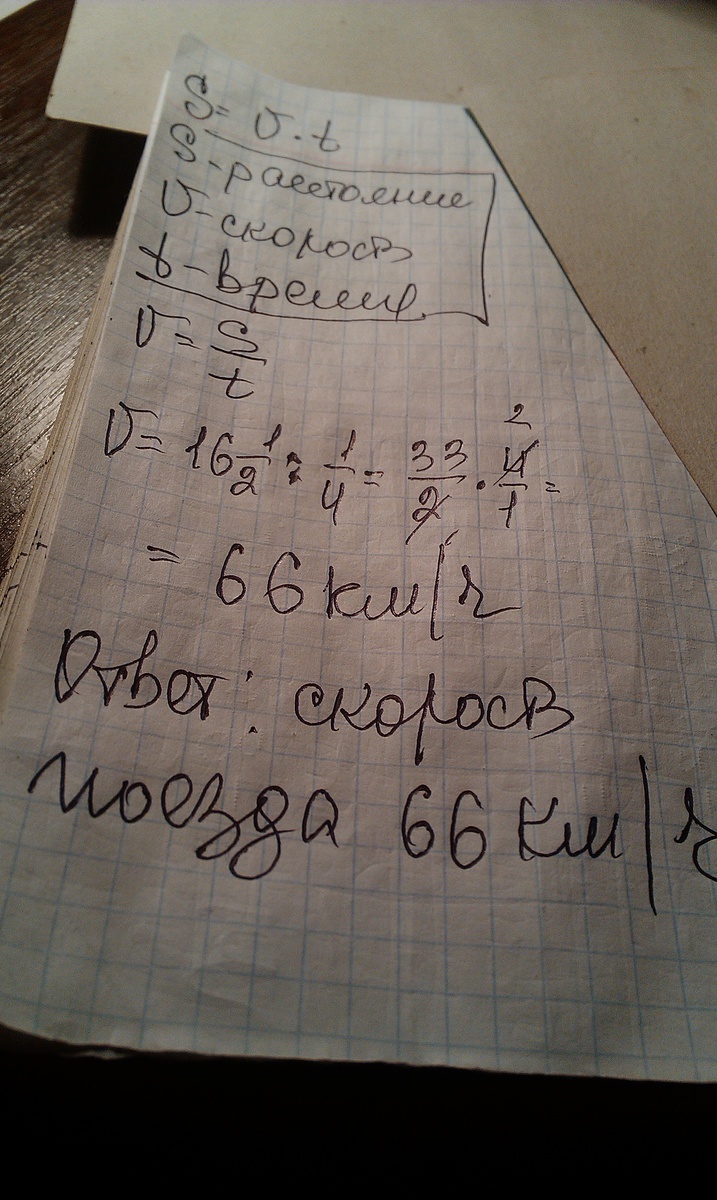 S = v · t
S - расстояние
v - скорость
t - время
v = S/t
v = 16 1/2 : 1/4 = 33/2 · 4/1 =
2
= 66 км/ч
Ответ: скорость
поезда 66 км/ч